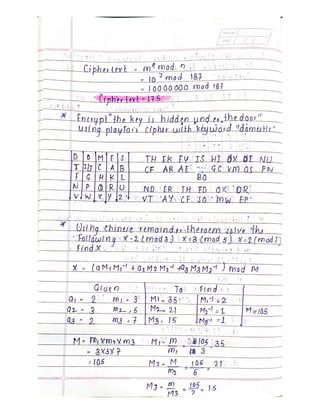 Ciphertext = m^e mod n
= 10^7 mod 187
= 10000000 mod 187
Ciphertext = 175
* Encrypt "the key is hidden under the door"
using playfair cipher with keyword "domestic"
D O M E S
T I/J C A B
F G H K L
N P Q R U
V W X Y Z
TH EK EY IS HI DX DE NU
CF AR AE GC VM OS PN
BO
ND ER TH ED OX OR
VT AY CF IO MW EP
* Using chinese remainder theorem solve the
following x=2(mod 3) x=3(mod 5) x=2(mod 7)
Find x.
X = (a1M1M1^-1 + a2M2M2^-1 + a3M3M3^-1) mod M
Given To Find
a1 = 2 m1 = 3 M1 = 35 M1^-1 = 2
a2 = 3 m2 = 5 M2 = 21 M2^-1 = 1 M=105
a3 = 2 m3 = 7 M3 = 15 M3^-1 = 1
M = m1xm2xm3 M1 = M/m1 = 105/3 = 35
= 3x5x7
= 105 M2 = M/m2 = 105/5 = 21
M3 = M/m3 = 105/7 = 15